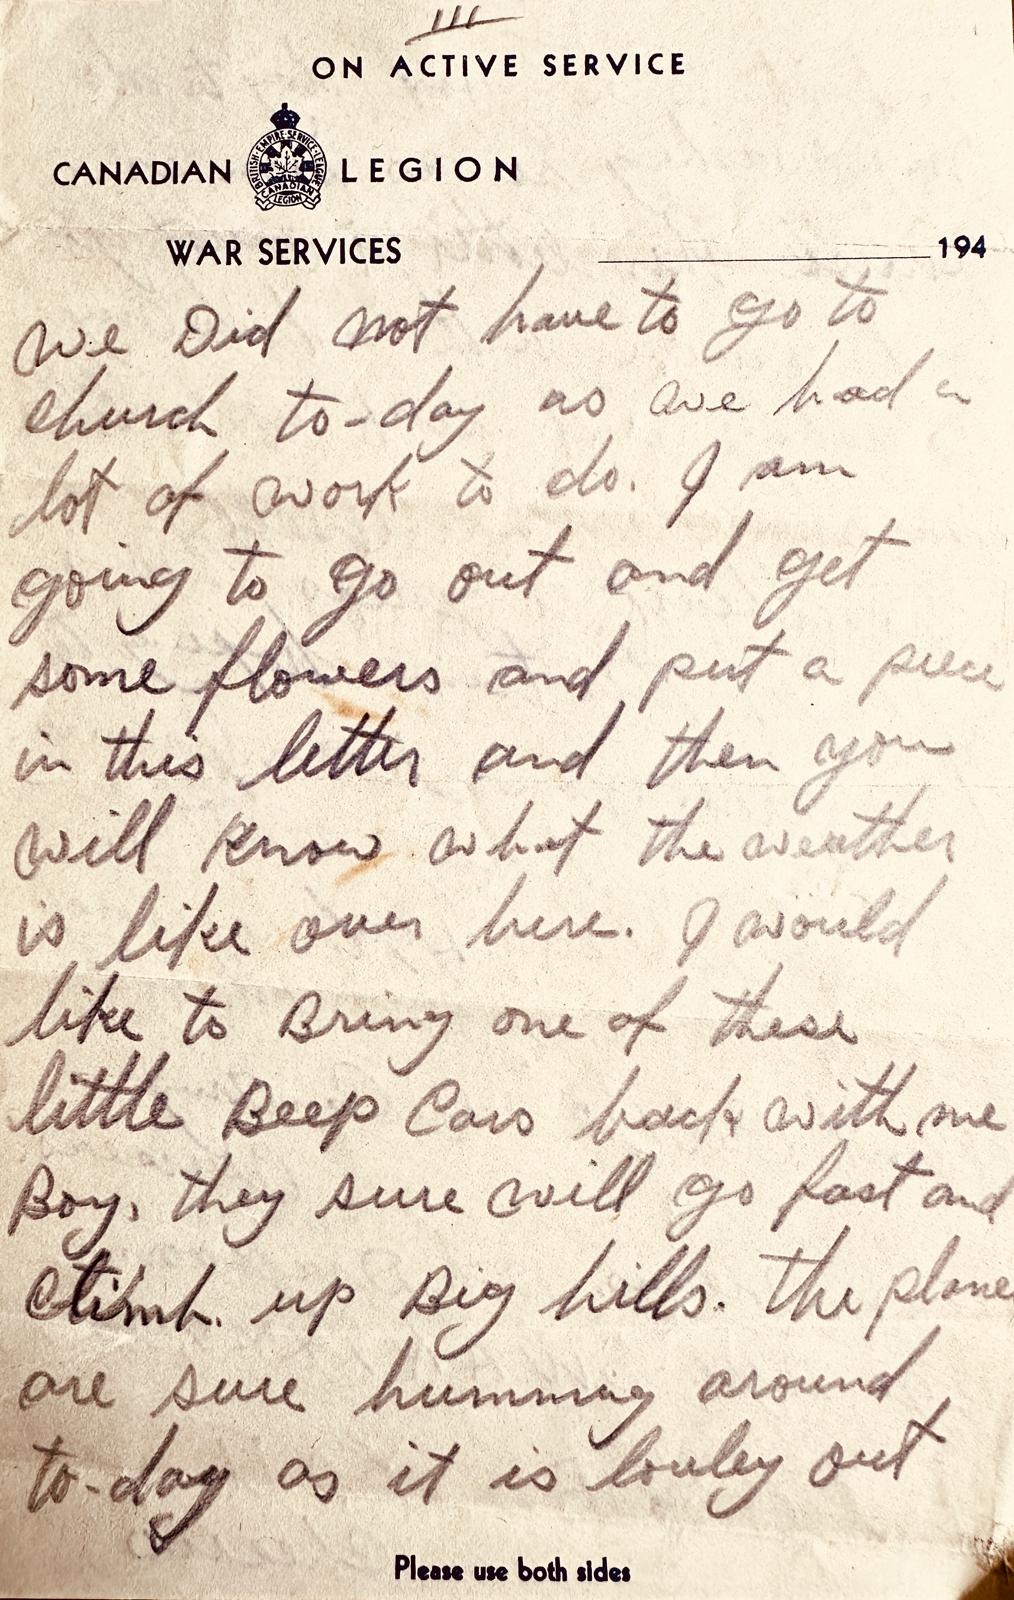 III
ON ACTIVE SERVICE
CANADIAN LEGION
BRITISH EMPIRE SERVICE LEAGUE
CANADIAN
LEGION
WAR SERVICES
194
we Did not have to go to
church to-day as we had a
lot of work to do. I am
going to go out and get
some flowers and put a piece
in this letter and then you
will know what the weather
is like over here. I would
like to Bring one of these
little Beep Cars back with me
Boy, they sure will go fast and
climb. up Big hills. The plane
are sure humming around
to-day as it is louley out
Please use both sides